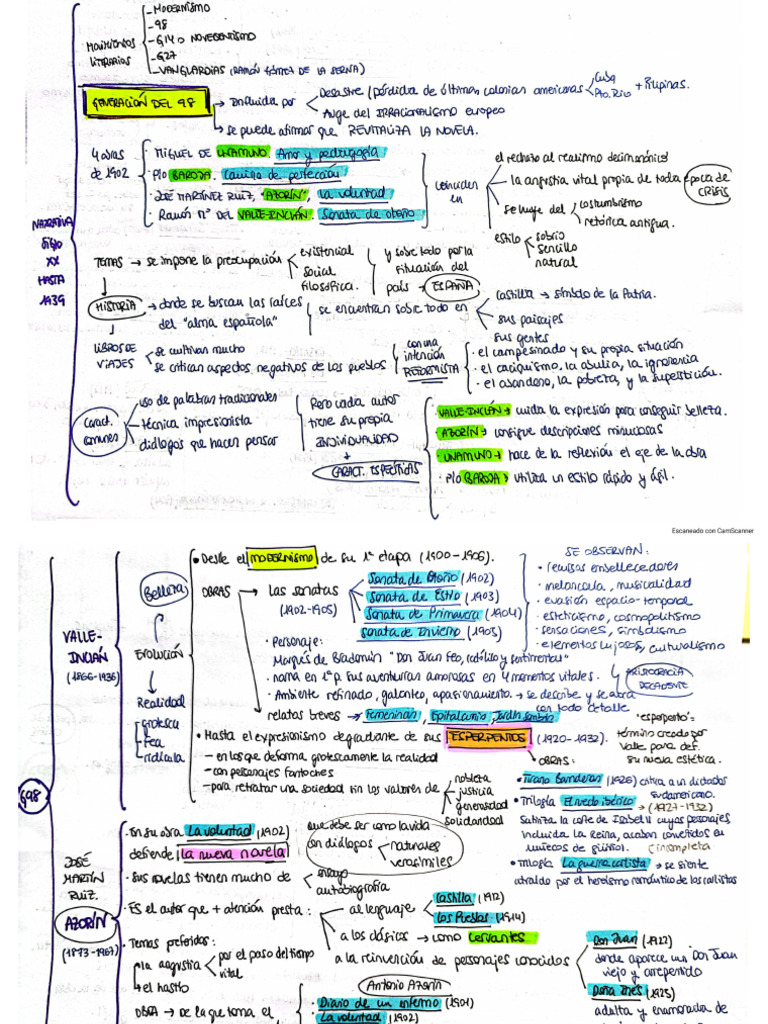 Movimientos literarios
- MODERNISMO
- 98
- G14 o NOVECENTISMO
- G27
- VANGUARDIAS (RAMÓN GÓMEZ DE LA SERNA)
NARRATIVA SIGLO XX HASTA 1939
GENERACIÓN DEL 98
→ Influida por
Desastre (pérdida de últimas colonias americanas
Cuba
Pto. Rico
+ Filipinas.
Auge del IRRACIONALISMO europeo
→ se puede afirmar que REVITALIZA LA NOVELA.
4 obras de 1902
· MIGUEL DE UNAMUNO. Amor y pedagogía
· Pío BAROJA. Camino de perfección
· JOSÉ MARTÍNEZ RUIZ, "AZORÍN", La voluntad
· Ramón Mª del VALLE-INCLÁN. Sonata de otoño
coinciden en
el rechazo al realismo decimonónico
la angustia vital propia de toda época de CRISIS
se huye del
costumbrismo
retórica antigua.
estilo
sobrio
sencillo
natural
TEMAS → se impone la preocupación
existencial
social
filosófica.
y sobre todo por la situación del país → ESPAÑA
HISTORIA → donde se buscan las raíces del "alma española"
se encuentran sobre todo en
castilla → símbolo de la Patria.
sus paisajes
sus gentes
LIBROS DE VIAJES
se cultivan mucho
se critican aspectos negativos de los pueblos
con una intención REFORMISTA
· el campesinado y su propia situación
· el caciquismo, la abulia, la ignorancia
· el abandono, la pobreza, y la superstición.
Caract. comunes
uso de palabras tradicionales
técnica impresionista
diálogos que hacen pensar
Pero cada autor tiene su propia INDIVIDUALIDAD
→ CARACT. ESPECÍFICAS
· VALLE-INCLÁN → cuida la expresión para conseguir belleza.
· AZORÍN → consigue descripciones minuciosas
· UNAMUNO → hace de la reflexión el eje de la obra
· Pío BAROJA → utiliza un estilo rápido y ágil.
Escaneado con CamScanner
G98
VALLE-INCLÁN
(1866-1936)
Evolución
Belleza
Realidad
grotesca
fea
ridícula
· Desde el MODERNISMO de su 1ª etapa (1900-1906).
OBRAS
→ Las sonatas
(1902-1905)
Sonata de Otoño (1902)
Sonata de Estío (1903)
Sonata de Primavera (1904)
Sonata de Invierno (1905)
· Personaje:
Marqués de Bradomín "Don Juan feo, católico y sentimental"
· narra en 1ª p. sus aventuras amorosas en 4 momentos vitales.
· Ambiente refinado, galanteo, apasionamiento. → se describe y se adora con todo detalle
ARISTOCRACIA DECADENTE
SE OBSERVAN:
· recursos embellecedores
· melancolía, musicalidad
· evasión espacio-temporal
· esteticismo, cosmopolitismo
· sensaciones, simbolismo
· elementos lujosos, culturalismo
relatos breves → Femeninas, Epitalamio, Jardín Sombrío
· Hasta el expresionismo degradante de sus ESPERPENTOS (1920-1932).
"esperpento": término creado por Valle para def. su nueva estética.
- en los que deforma grotescamente la realidad
- con personajes fantoches
- para retratar una sociedad sin los valores de
nobleza
justicia
generosidad
solidaridad
OBRAS:
· Tirano Banderas (1926) critica a un dictador sudamericano.
· Trilogía El ruedo ibérico → (1927-1932)
Satiriza la corte de Isabel II cuyos personajes
incluida la Reina, acaban convertidos en
muñecos de guiñol. (incompleta
· Trilogía La guerra carlista → se siente
atraído por el heroísmo romántico de los carlistas
JOSÉ MARTÍN RUIZ.
AZORÍN
(1873-1967)
· En su obra La voluntad (1902)
defiende La nueva novela
que debe ser como la vida
con diálogos
naturales
verosímiles
· Sus novelas tienen mucho de
ensayo
autobiografía
· Es el autor que + atención presta:
al lenguaje
Castilla (1912)
Los Pueblos (1914)
a los clásicos → como Cervantes
a la reinvención de personajes conocidos
Don Juan (1922)
donde aparece un Don Juan
viejo y arrepentido
Doña Inés (1925)
adulta y enamorada de
· Temas preferidos:
la angustia
por el paso del tiempo
vital
el hastío
OBRA → se la que toma el
Antonio Azorín
· Diario de un enfermo (1901)
· La voluntad (1902)